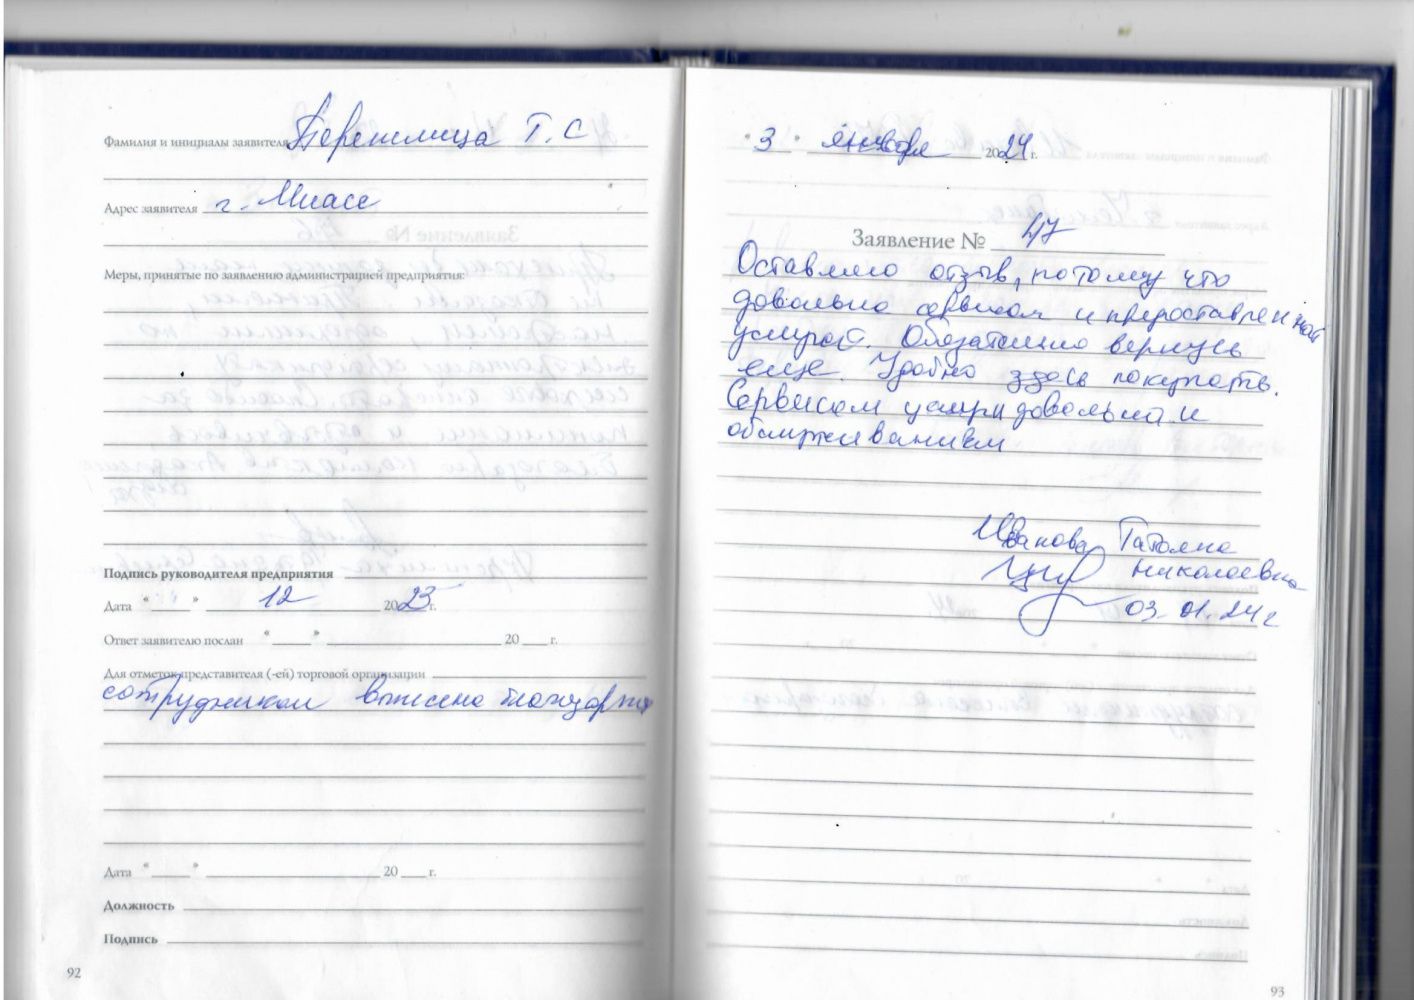 Фамилия и инициалы заявителя Перемлица Т. С
Адрес заявителя г. Миасс
Меры, принятые по заявлению администрацией предприятия:
Подпись руководителя предприятия
Дата “ ” 12 2023 г.
Ответ заявителю послан “ ” 20 г.
Для отметок представителя (-ей) торговой организации
сотрудникам вынесена благодарность
Дата “ ” 20 г.
Должность
Подпись
92
“ 3 ” января 2024 г.
Заявление № 47
Оставляю отзыв, потому что
довольна сервисом и предоставленной
услугой. Обязательно вернусь
еще. Удобно здесь покупать.
Сервисом услуги довольна и
обслуживанием
Иванова Татьяна
Николаевна
03.01.24г
93